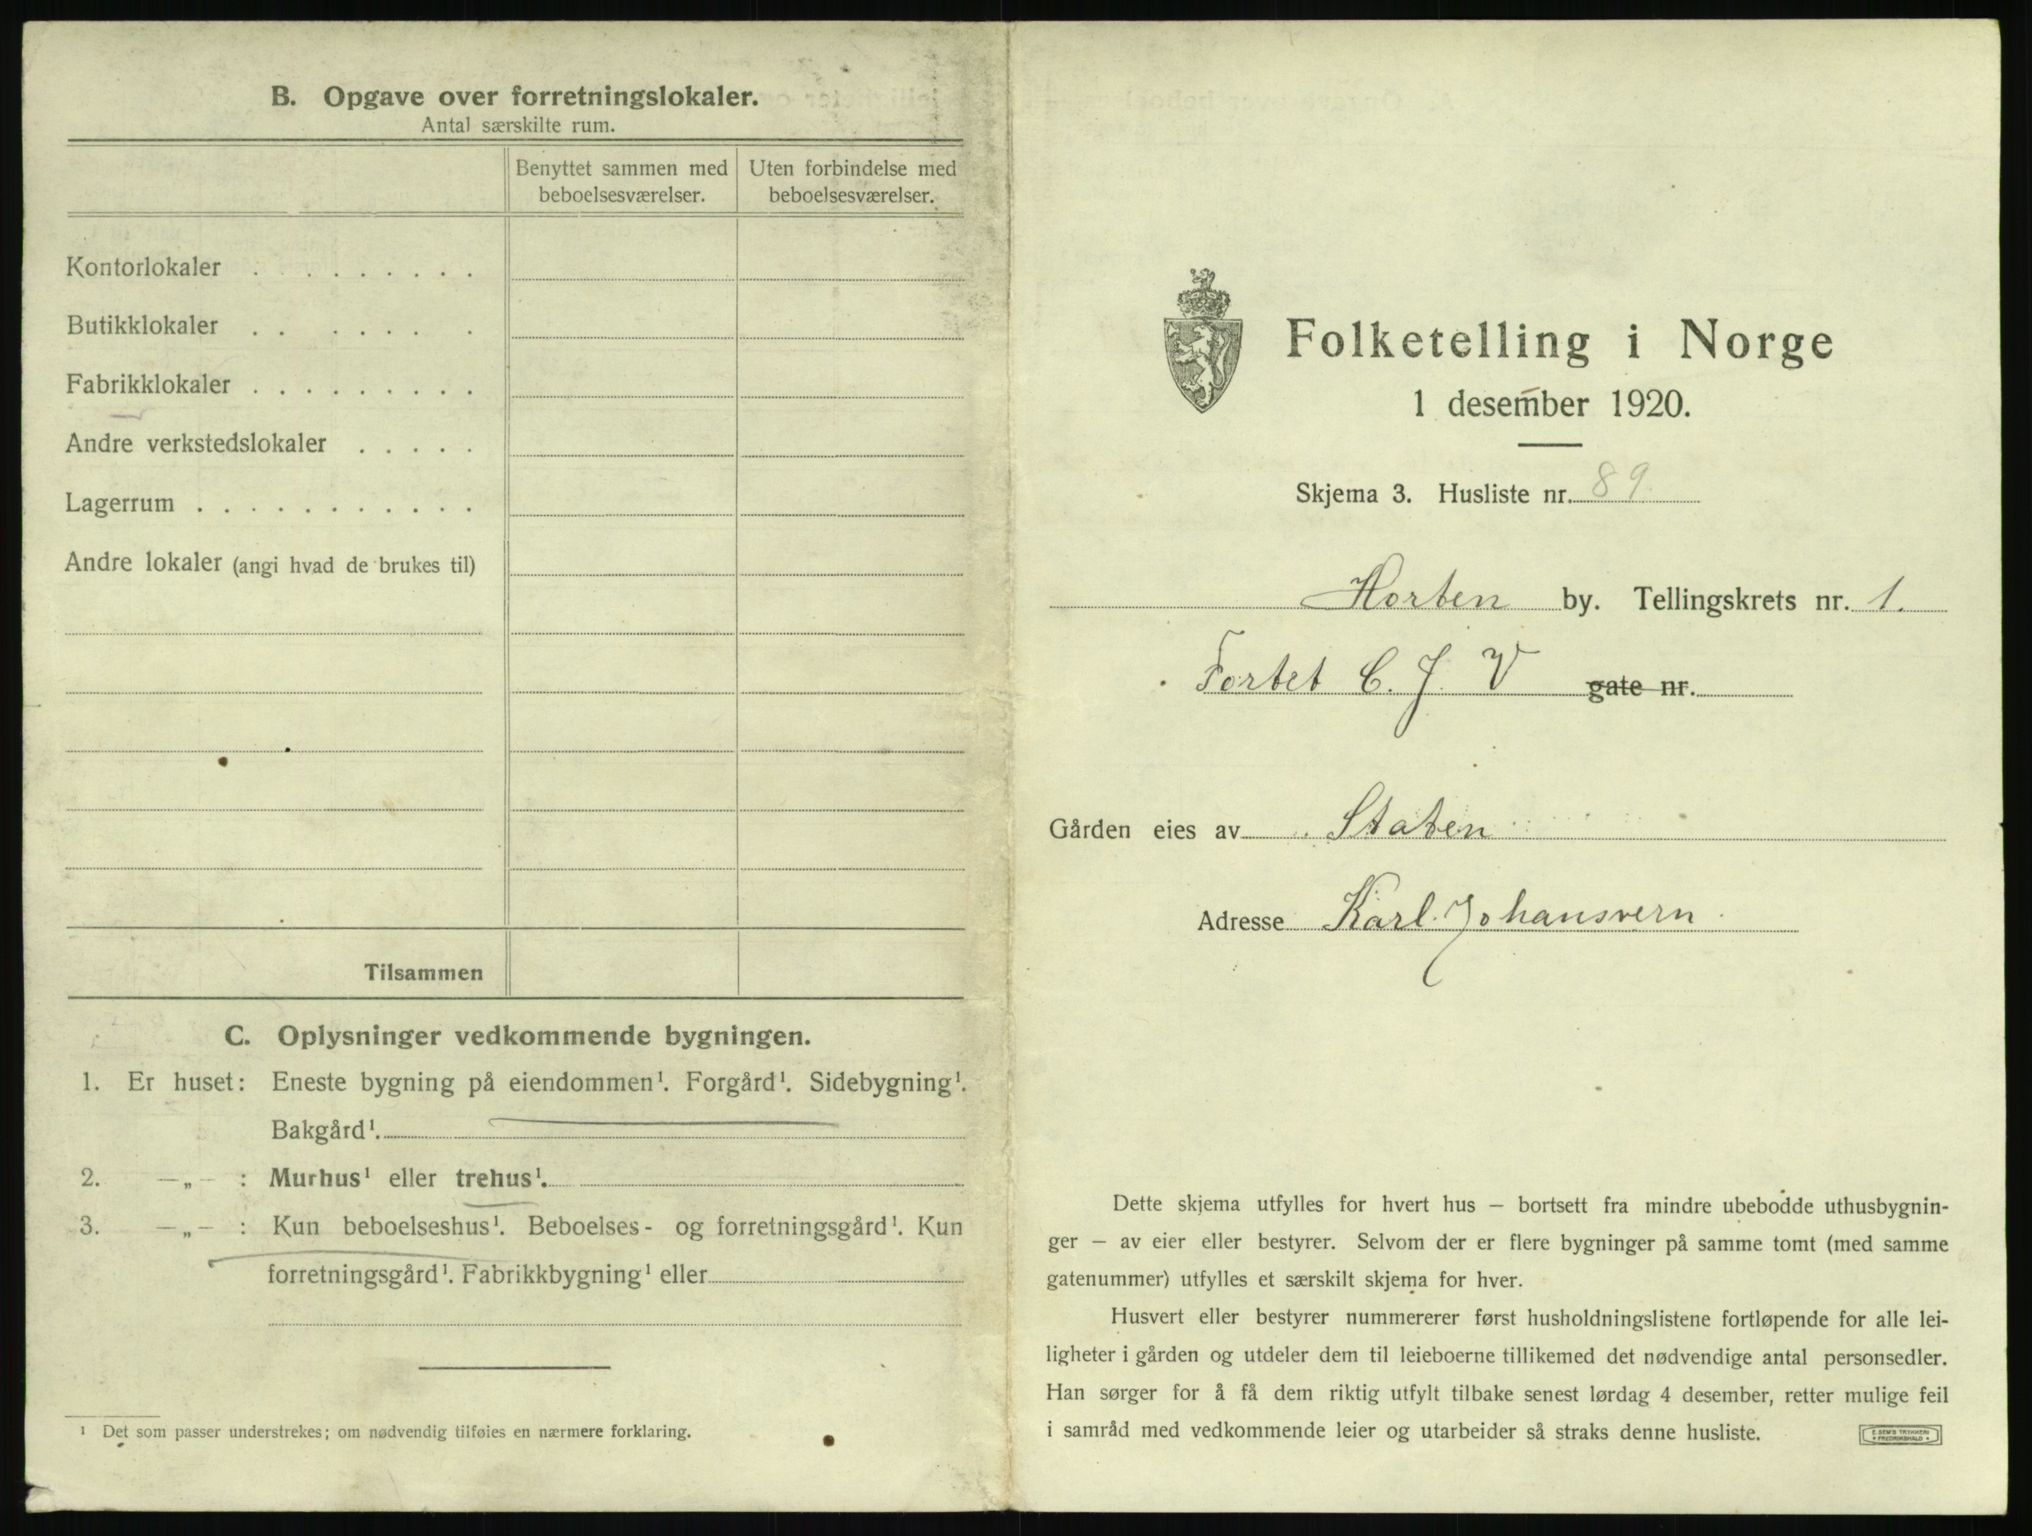 B. Opgave over forretningslokaler.
Antal særskilte rum.
Benyttet sammen med beboelsesværelser.
Uten forbindelse med beboelsesværelser.
Kontorlokaler . . . . . . . . .
Butikklokaler . . . . . . .
Fabrikklokaler . . . . . . . . .
Andre verkstedslokaler . . . . .
Lagerrum . . . . . . . . . . .
Andre lokaler (angi hvad de brukes til)
Tilsammen
C. Oplysninger vedkommende bygningen.
1. Er huset: Eneste bygning på eiendommen¹. Forgård¹. Sidebygning¹.
Bakgård¹.
2. —„— : Murhus¹ eller trehus¹.
3. —„— : Kun beboelseshus¹. Beboelses- og forretningsgård¹. Kun
forretningsgård¹. Fabrikkbygning¹ eller
¹ Det som passer understrekes; om nødvendig tilføies en nærmere forklaring.
Folketelling i Norge
1 desember 1920.
Skjema 3. Husliste nr. 89
Horten by. Tellingskrets nr. 1.
Fortet C. J. V gate nr.
Gården eies av Staten
Adresse Karl Johansvern.
Dette skjema utfylles for hvert hus — bortsett fra mindre ubebodde uthusbygnin-
ger — av eier eller bestyrer. Selvom der er flere bygninger på samme tomt (med samme
gatenummer) utfylles et særskilt skjema for hver.
Husvert eller bestyrer nummererer først husholdningslistene fortløpende for alle lei-
ligheter i gården og utdeler dem til leieboerne tillikemed det nødvendige antal personsedler.
Han sørger for å få dem riktig utfylt tilbake senest lørdag 4 desember, retter mulige feil
i samråd med vedkommende leier og utarbeider så straks denne husliste.
E. SEM'S TRYKKERI
FREDRIKSHALD